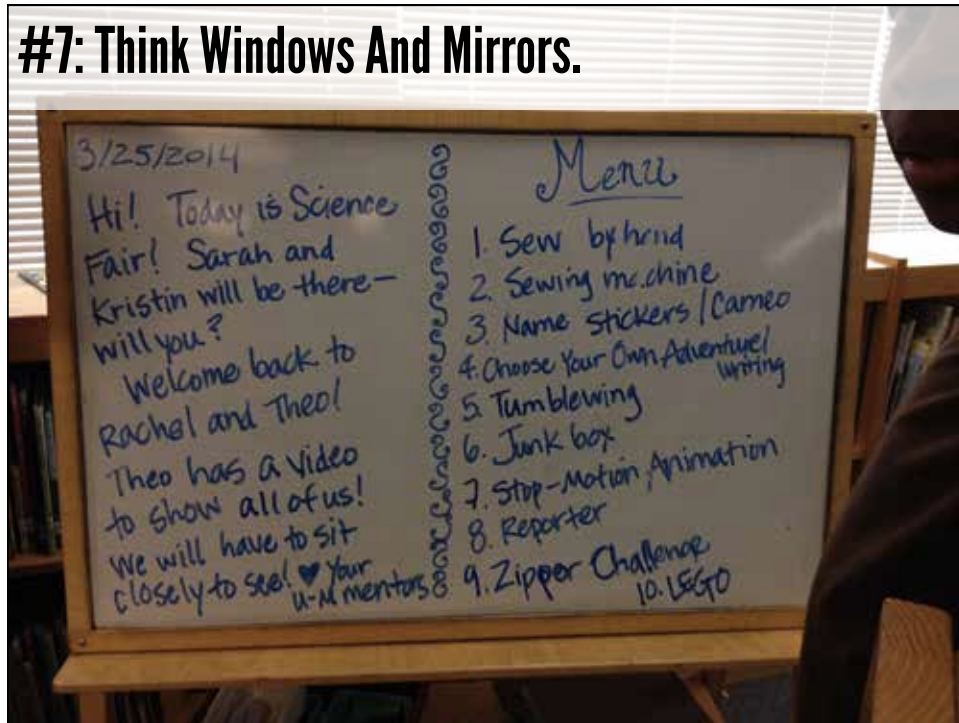 #7: Think Windows And Mirrors.
3/25/2014
Hi! Today is Science
Fair! Sarah and
Kristin will be there-
will you?
Welcome back to
Rachel and Theo!
Theo has a video
to show all of us!
We will have to sit
closely to see! ♥ Your
U-M mentors
Menu
1. Sew by hand
2. Sewing machine
3. Name stickers / Cameo
4. Choose Your Own Adventure/
writing
5. Tumblewing
6. Junk box
7. Stop-Motion Animation
8. Reporter
9. Zipper Challenge
10. LEGO